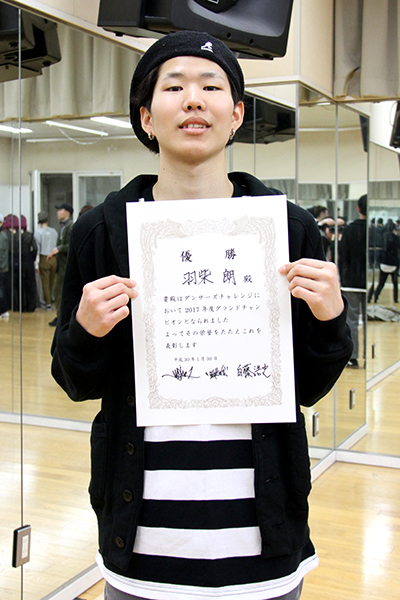 優勝
羽柴 朗 殿
貴殿はダンサーズチャレンジに
おいて2017年度グランドチャン
ピオンとなられました
よってその栄誉をたたえこれを
表彰します
平成30年1月30日